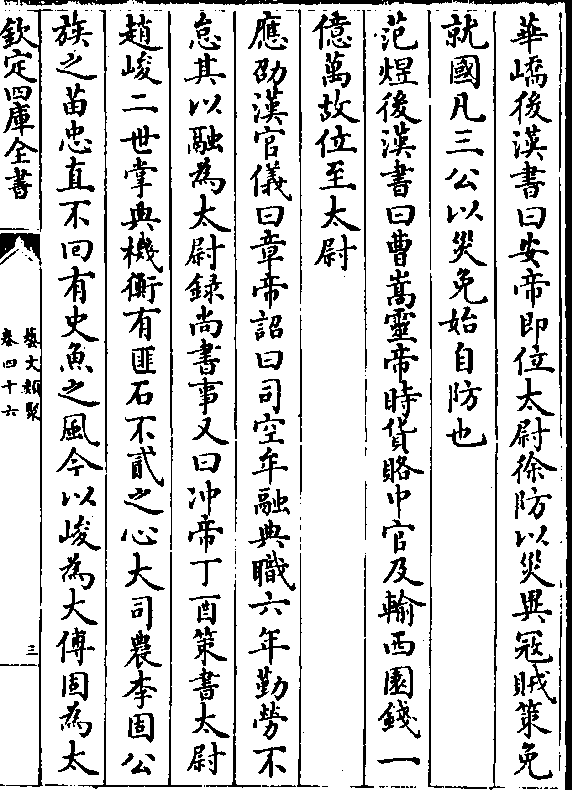 華嶠後漢書曰安帝即位太尉徐防以災異寇賊策免
就國凡三公以災免始自防也
范煜後漢書曰曹嵩靈帝時貨賂中官及輸西園錢一
億萬故位至太尉
應劭漢官儀曰章帝詔曰司空牟融典職六年勤勞不
怠其以融為太尉録尚書事又曰冲帝丁酉策書太尉
趙峻二世掌典機衡有匪石不貳之心大司農李固公
族之苗忠直不回有史魚之風今以峻為大傅固為太
欽定四庫全書
藝文類聚
卷四十六
三